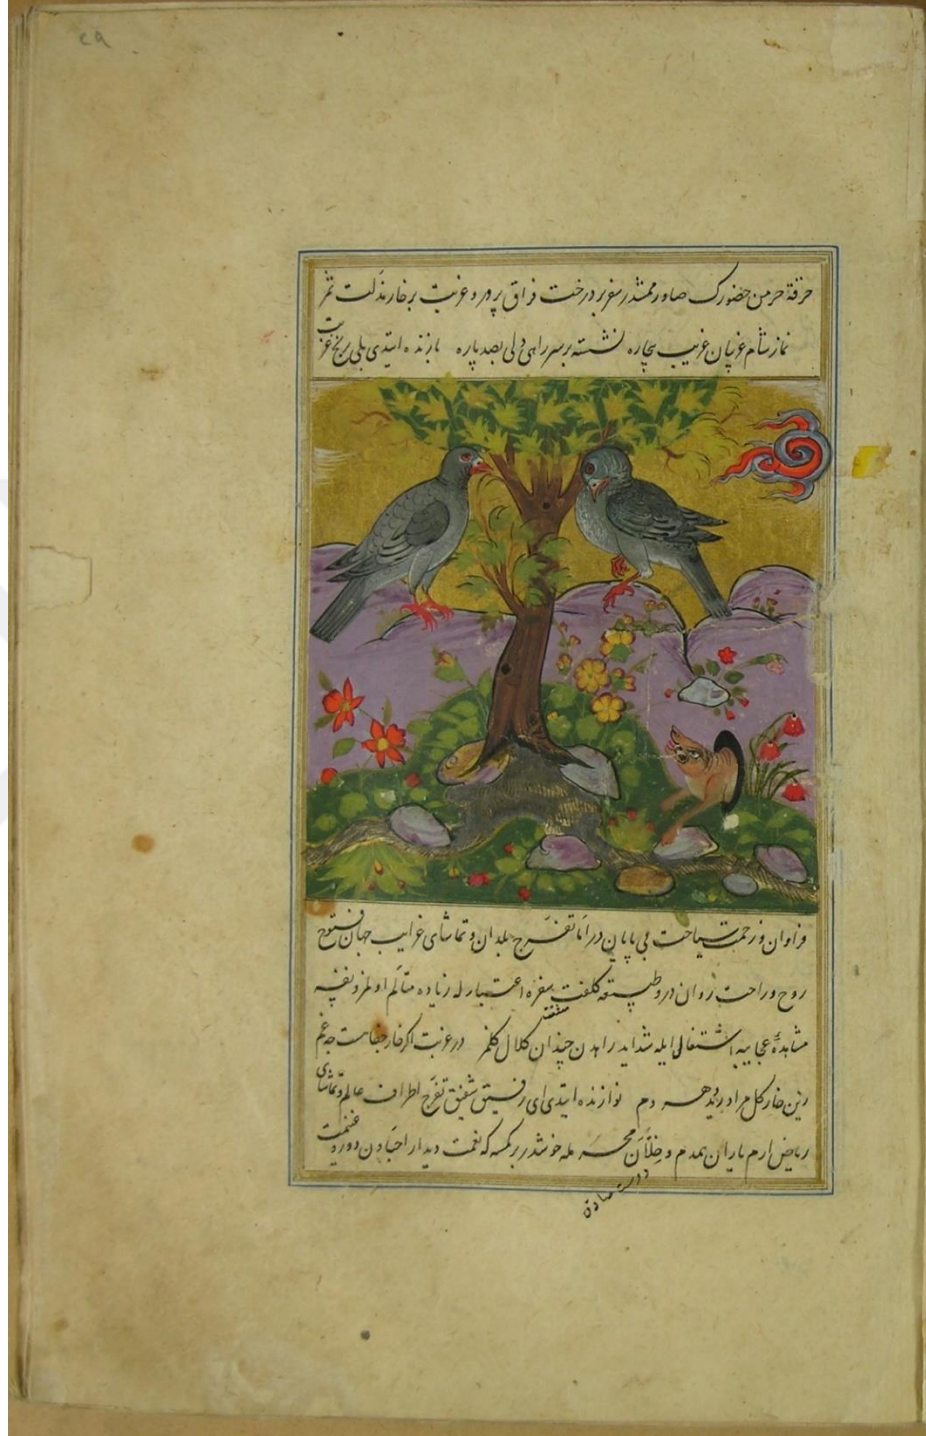 ٢٩
حرقهٔ حرمن حضورک صاور ممشدر سفر بر درخت فراق پرور و غربت بر خار مذلت ثمر
نماز شام غریبان غریب بیچاره نشسته بر سر راهی دلی بصد پاره بازنده ایتدی بلی رنج غربت
فراوان و زحمت سیاحت بی پایاندر اما تفرج بلدان و تماشای غرایب جهان فتوح
روح و راحت رواندر و طبیعت کلفت سفره اعتبار له زیاده متألم اولمز و نفسه
مشاهدهٔ عجایبه اشتغالی ایله شداید راهدن چندان کلال کلمز در غربت اکر خار جفا هست چه غم
زین خار کل مراد روید همه دم نوازنده ایتدی ای رفیق شفیق تفرج اطراف عالم و تماشای
ریاض ارم یاران همدم و خلان محرم له خوشدر بر کمسه که نعمت دیدار احبادن دور و
دوست صادق